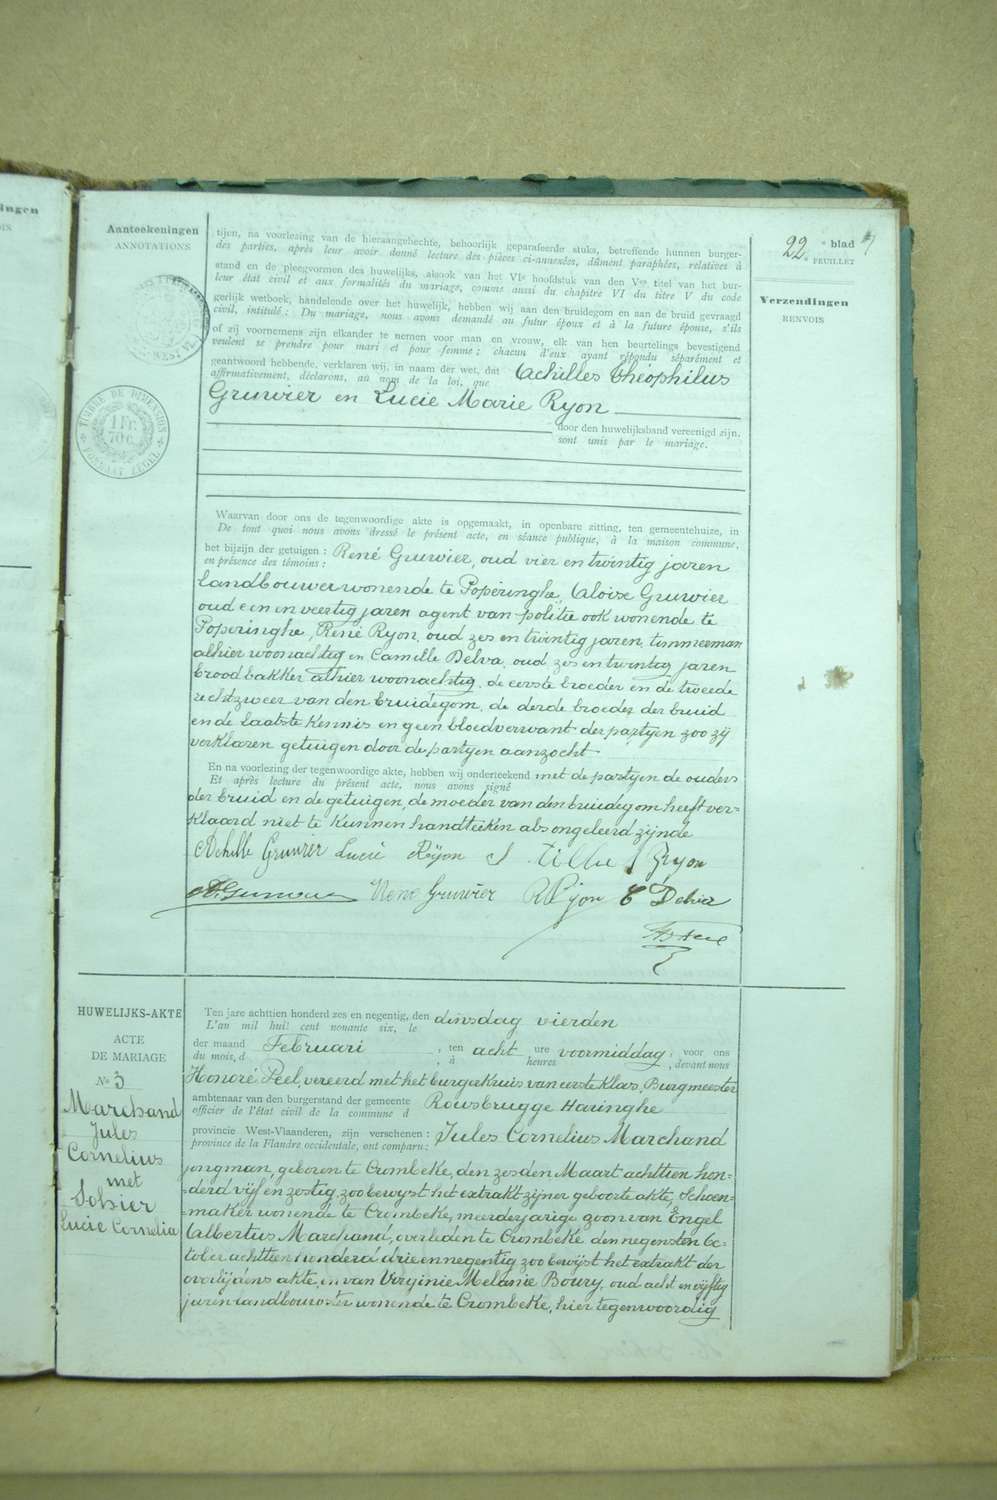 Aanteekeningen
ANNOTATIONS
TIMBRE DE DIMENSION
1 Fr.
70 c.
FORMAAT ZEGEL
22 e blad
FEUILLET
Verzendingen
RENVOIS
tijen, na voorlezing van de hieraangehechte, behoorlijk geparafeerde stuks, betreffende hunnen burger-
des parties, après leur avoir donné lecture des pièces ci-annexées, dûment paraphées, relatives à
stand en de pleegvormen des huwelijks, alsook van het VIe hoofdstuk van den Ven titel van het bur-
leur état civil et aux formalités du mariage, comme aussi du chapitre VI du titre V du code
gerlijk wetboek, handelende over het huwelijk, hebben wij aan den bruidegom en aan de bruid gevraagd
civil, intitulé : Du mariage, nous avons demandé au futur époux et à la future épouse, s'ils
of zij voornemens zijn elkander te nemen voor man en vrouw, elk van hen beurtelings bevestigend
veulent se prendre pour mari et pour femme ; chacun d'eux ayant répondu séparément et
geantwoord hebbende, verklaren wij, in naam der wet, dat Achilles Théophilus
affirmativement, déclarons, au nom de la loi, que
Gruwier en Lucie Marie Ryon
door den huwelijksband vereenigd zijn.
sont unis par le mariage.
Waarvan door ons de tegenwoordige akte is opgemaakt, in openbare zitting, ten gemeentehuize, in
De tout quoi nous avons dressé le présent acte, en séance publique, à la maison commune,
het bijzijn der getuigen : René Gruwier, oud vier en twintig jaren
en présence des témoins :
landbouwer wonende te Poperinghe, Aloise Gruwier
oud een en veertig jaren agent van politie ook wonende te
Poperinghe, René Ryon, oud zes en twintig jaren, timmerman
alhier woonachtig en Camille Delva, oud zes en twintig jaren
broodbakker alhier woonachtig, de eerste broeder en de tweede
rechtzweer van den bruidegom, de derde broeder der bruid
en de laatste kennis en geen bloedverwant der partyen zoo zij
verklaren getuigen door de partyen aanzocht
En na voorlezing der tegenwoordige akte, hebben wij onderteekend met de partyen de ouders
Et après lecture du présent acte, nous avons signé
der bruid en de getuigen, de moeder van den bruidegom heeft ver-
klaard niet te kunnen handteeken als ongeleerd zijnde
Achille Gruwier Lucie Ryon Ryon
René Gruwier R Ryon C Delva
HUWELIJKS-AKTE
ACTE
DE MARIAGE
No 3
Marchand
Jules
Cornelius
met
Sohier
Lucie Cornelia
Ten jare achttien honderd zes en negentig, den dinsdag vierden
L'an mil huit cent nonante six, le
der maand Februari, ten acht ure voormiddag, voor ons
du mois, d , à heures , devant nous
Honoré Peel, vereerd met het burgerkruis van eerste klas, Burgmeester
ambtenaar van den burgerstand der gemeente Rousbrugge Haringhe
officier de l'état civil de la commune d
provincie West-Vlaanderen, zijn verschenen : Jules Cornelius Marchand
province de la Flandre occidentale, ont comparu :
jongman, geboren te Crombeke, den zesden Maart achttien hon-
derd vijf en zestig, zoo bewyst het extrakt zijner geboorte akte, schoen-
maker wonende te Crombeke, meerderjarige zoon van Engel
Albertus Marchand, overleden te Crombeke den negensten Oc-
tober achttien honderd drie en negentig zoo bewijst het extrakt der
overlijdens akte, en van Virginie Melanie Boury, oud acht en vijftig
jaren landbouwster wonende te Crombeke, hier tegenwoordig